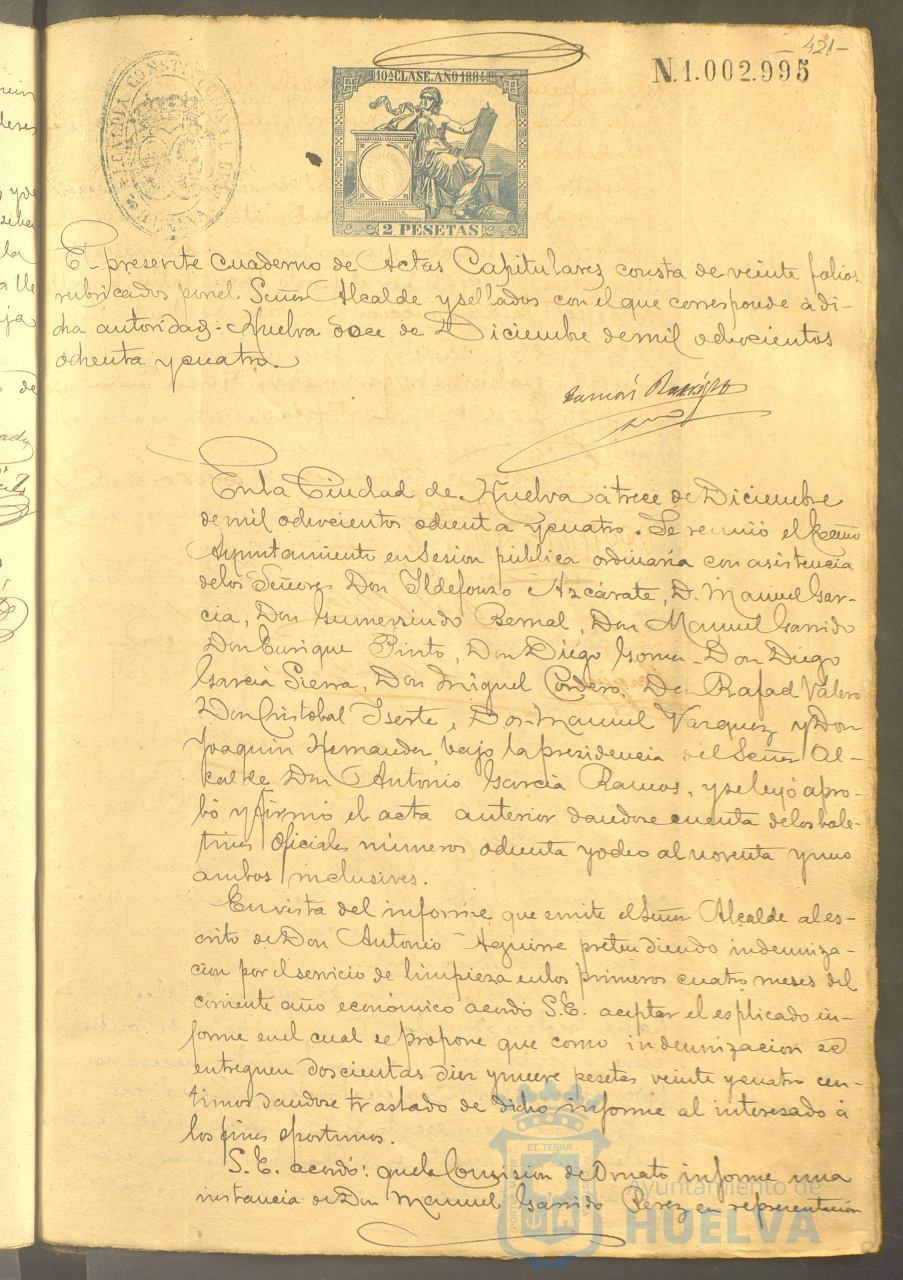 421-
N.1.002.995
10ª CLASE. AÑO 1884
2 PESETAS
ALCALDIA CONSTITUCIONAL DE HUELVA
El presente cuaderno de Actas Capitulares consta de veinte folios
rubricados por el Señor Alcalde y sellados con el que corresponde á di-
cha autoridad. Huelva doce de Diciembre de mil ochocientos
ochenta y cuatro.
En la Ciudad de Huelva á trece de Diciembre
de mil ochocientos ochenta y cuatro. Se reunió el
Ayuntamiento en Sesion pública ordinaria con asistencia
de los Señores Don Ildefonso Azcárate, D. Manuel Gar-
cia, Don Gumersindo Bernal, Don Manuel Garrido
Don Enrique Pinto, Don Diego Gomez Don Diego
Garcia Sierra, Don Miguel Cordero, Don Rafael Valero
Don Cristobal Iserte, Don Manuel Vazquez y Don
Joaquin Hernandez, bajo la presidencia del Señor Al-
calde Don Antonio Garcia Ramos, y se leyó apro-
bó y firmó el acta anterior dandose cuenta de los bole-
tines Oficiales números ochenta y ocho al noventa y uno
ambos inclusives.
En vista del informe que emite el Señor Alcalde al es-
crito de Don Antonio Aguirre pretendiendo indemniza-
cion por el servicio de limpieza en los primeros cuatro meses del
corriente año económico acordó S.E. aceptar el esplicado in-
forme en el cual se propone que como indemnizacion se
entreguen doscientas diez y nueve pesetas veinte y cuatro cen-
timos dandose traslado de dicho informe al interesado á
los fines oportunos.
S.E. acordó: que la Comision de Ornato informe una
instancia de Don Manuel Garrido Perez en representacion
Ayuntamiento de
HUELVA